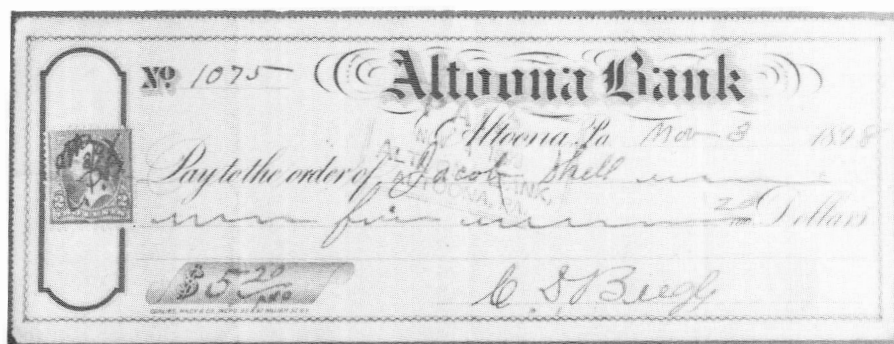 No 1075 Altoona Bank
Altoona, Pa Nov 3 1898
Pay to the order of Jacob Shell
five 20/100 Dollars
$ 5 20/100
C. S.